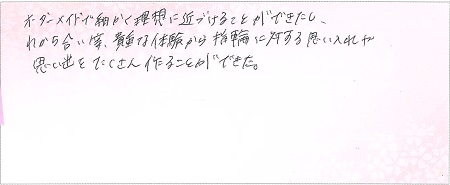 オーダーメイドで細かく理想に近づけることができたし、
わかち合い等、貴重な体験から指輪に対する思い入れや
思い出をたくさん作ることができた。